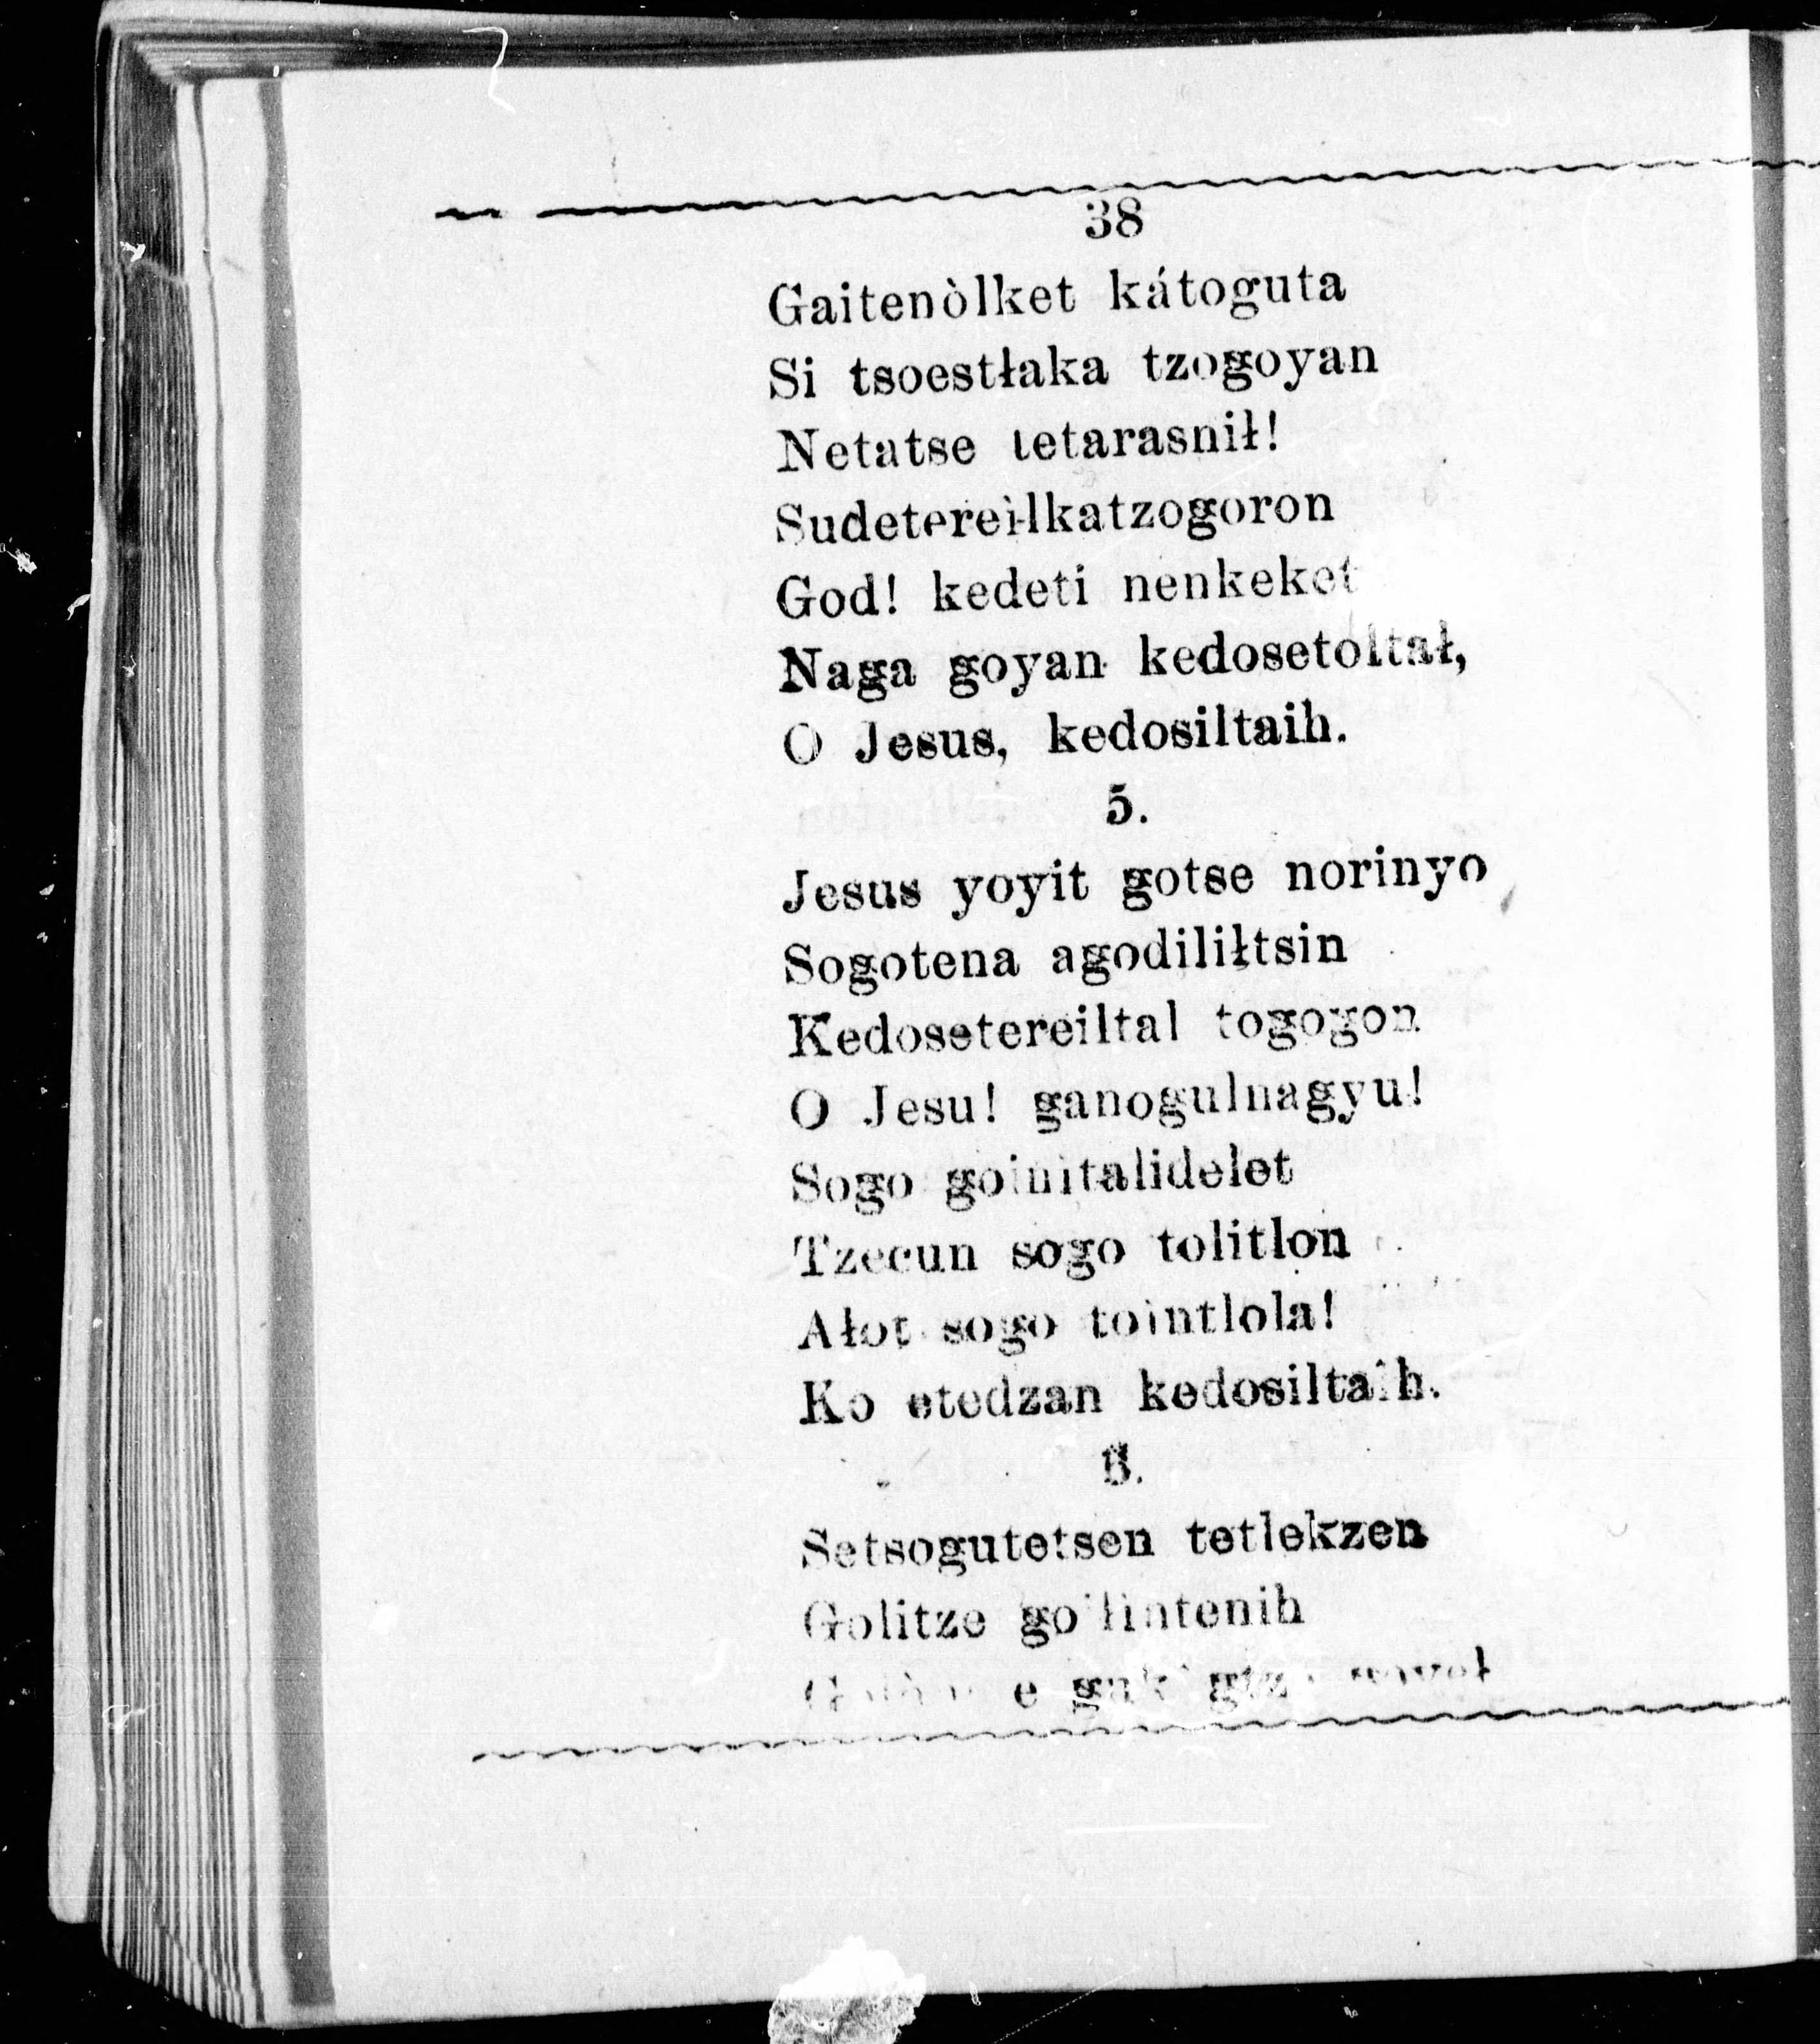 38
Gaitenòlket kátoguta
Si tsoestłaka tzogoyan
Netatse tetarasnił!
Sudetereìlkatzogoron
God! kedeti nenkeket
Naga goyan kedosetoltał,
O Jesus, kedosiltaih.
5.
Jesus yoyit gotse norinyo
Sogotena agodiliłtsin
Kedosetereiltal togogon
O Jesu! ganogulnagyu!
Sogo goinitalidelet
Tzecun sogo tolitlon
Ałot sogo tointlola!
Ko etedzan kedosiltaih.
6.
Setsogutetsen tetlekzen
Golitze